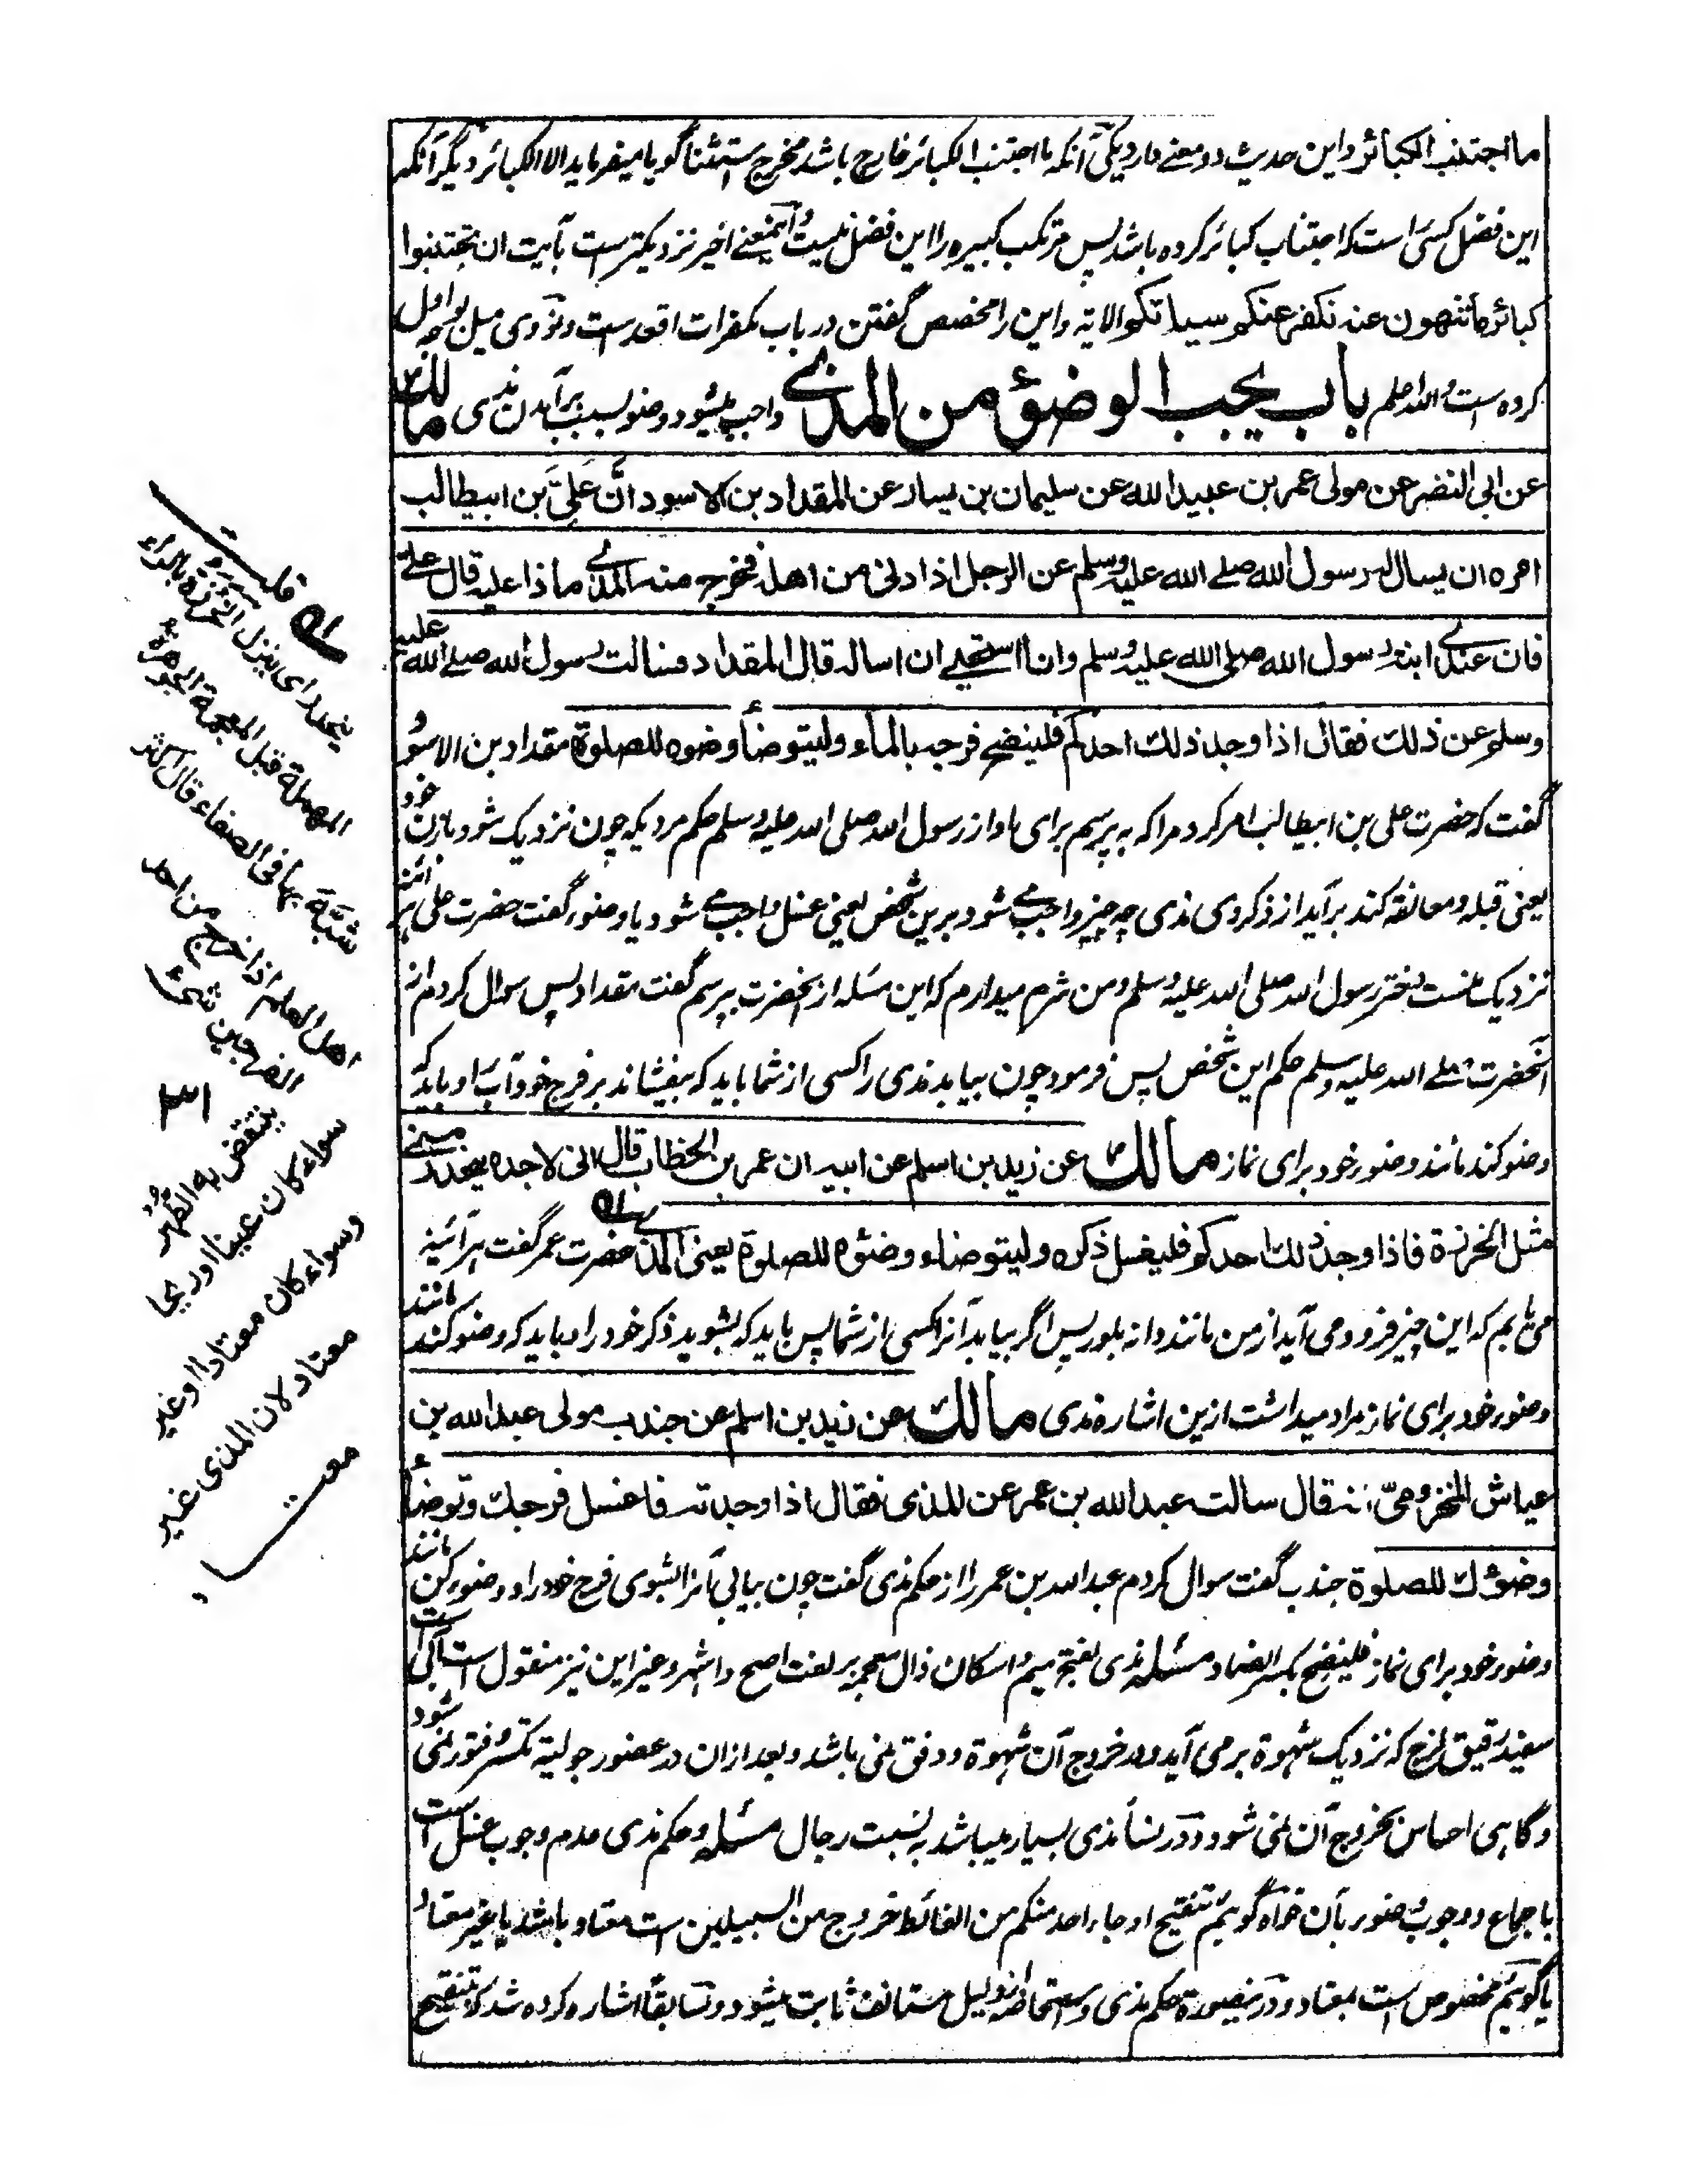 ما اجتنب الکبائر و این حدیث دو معنے دارد یکی آنکه ما اجتنب الکبائر خارج باشد مخرج استثنا گویا میفرماید الا الکبائر دیگر آنکه
این فضل کسی است که اجتناب کبائر کرده باشد پس مرتکب کبیره را این فضل نیست و این معنے اخیر نزدیکتر است بآیت ان تجتنبوا
کبائر ما تنهون عنه نکفر عنکم سیاتکم الایة و این را مخصص گفتن در باب مکفرات اقعد ست و نووی میل بوجه اول
کرده است والله اعلم باب یجب الوضؤ من المذی واجب میشود وضو بسبب برآمدن مذی مالک
عن ابی النضر عن مولی عمر بن عبید الله عن سلیمان بن یسار عن المقداد بن الاسود انّ عَلِیّ بن ابیطالب
امره ان یسال له رسول الله صلے الله علیه وسلم عن الرجل اذا دنی من اهله فخرج منه المذی ماذا علیه قال علے
فان عندی ابنة رسول الله صلی الله علیه وسلم وانا استحیے ان اساله قال المقداد فسالت رسول الله صلے الله علیه
وسلم عن ذلک فقال اذا وجد ذلک احدکم فلینضح فرجه بالماء ولیتوضأ وضوه للصلوة مقداد بن الاسود
گفت که حضرت علی بن ابیطالب امر کرد مرا که به پرسیم برای او از رسول الله صلی الله علیه وسلم حکم مردیکه چون نزدیک شود بازن خود
یعنی قبله و معانقه کند برآید از ذکر وی مذی چه چیز واجب مے شود برین شخص یعنی غسل واجب مے شود یا وضو گفت حضرت علی هر آئنه
نزدیک منست دختر رسول الله صلی الله علیه وسلم و من شرم میدارم که این مسئله از آنحضرت بپرسم گفت مقداد پس سوال کردم از
آنحضرت صلے الله علیه وسلم حکم این شخص پس فرمود چون بیابد مذی را کسی از شما باید که بیفشاند بر فرج خود آب و باید که
وضو کند مانند وضوء خود برای نماز مالک عن زید بن اسلم عن ابیه ان عمر بن الخطاب قال انی لاجده ینحدر منی
مثل الخرزة فاذا وجد ذلک احدکم فلیغسل ذکره ولیتوضاء وضؤه للصلوة یعنی المذی حضرت عمر گفت هر آئینه
می یابم که این چیز فرود می آید از من مانند دانه بلور پس اگر بیابد آنرا کسی از شما پس باید که بشوید ذکر خود را و باید که وضو کند مانند
وضوء خود برای نماز مراد میداشت ازین اشاره مذی مالک عن زید بن اسلم عن جندب مولی عبد الله بن
عیاش المخزومیّ انه قال سالت عبد الله بن عمر عن المذی فقال اذا وجدته فاغسل فرجک وتوضأ
وضوٴک للصلوة جندب گفت سوال کردم عبد الله بن عمر را از حکم مذی گفت چون بیابی آنرا بشوی فرج خود را و وضو کن مانند
وضوء خود برای نماز فلینضح بکسر الضاد مسئله مذی بفتح میم و اسکان ذال معجمه بر لغت اصح و اشهر و غیر این نیز منقول است آبی است
سفید رقیق لزج که نزدیک شهوة بر می آید و در خروج آن شهوة و دفق نمی باشد و بعد ازان در عضو رجولیة تکسر و فتور نمی شود
و گاهی احساس بخروج آن نمی شود و در نساء مذی بسیار میباشد به نسبت رجال مسئله و حکم مذی عدم وجوب غسل است
باجماع و وجوب وضو بآن خواه گوئیم تنقیح او جاء احد منکم من الغائط خروج من السبیلین ست معتاد باشد یا غیر معتاد
یا گوئیم مخصوص است بمعتاد و درینصورة حکم مذی و استحاضه بدلیل مستانف ثابت میشود و سابقاً اشاره کرده شد که تنقیح
له قلت
ینحدر ای ینزل الخرزة بالراء
المهملة قبل المعجمة الجوهرة
شبّه بها فی الصفاء قال اکثر
اهل العلم اذا خرج من احد
الفرجین شئ
ینتقض به الطهر
سواء کان عینا او ریحا
وسواء کان معتادا او غیر
معتاد لان المذی غیر
معتاد